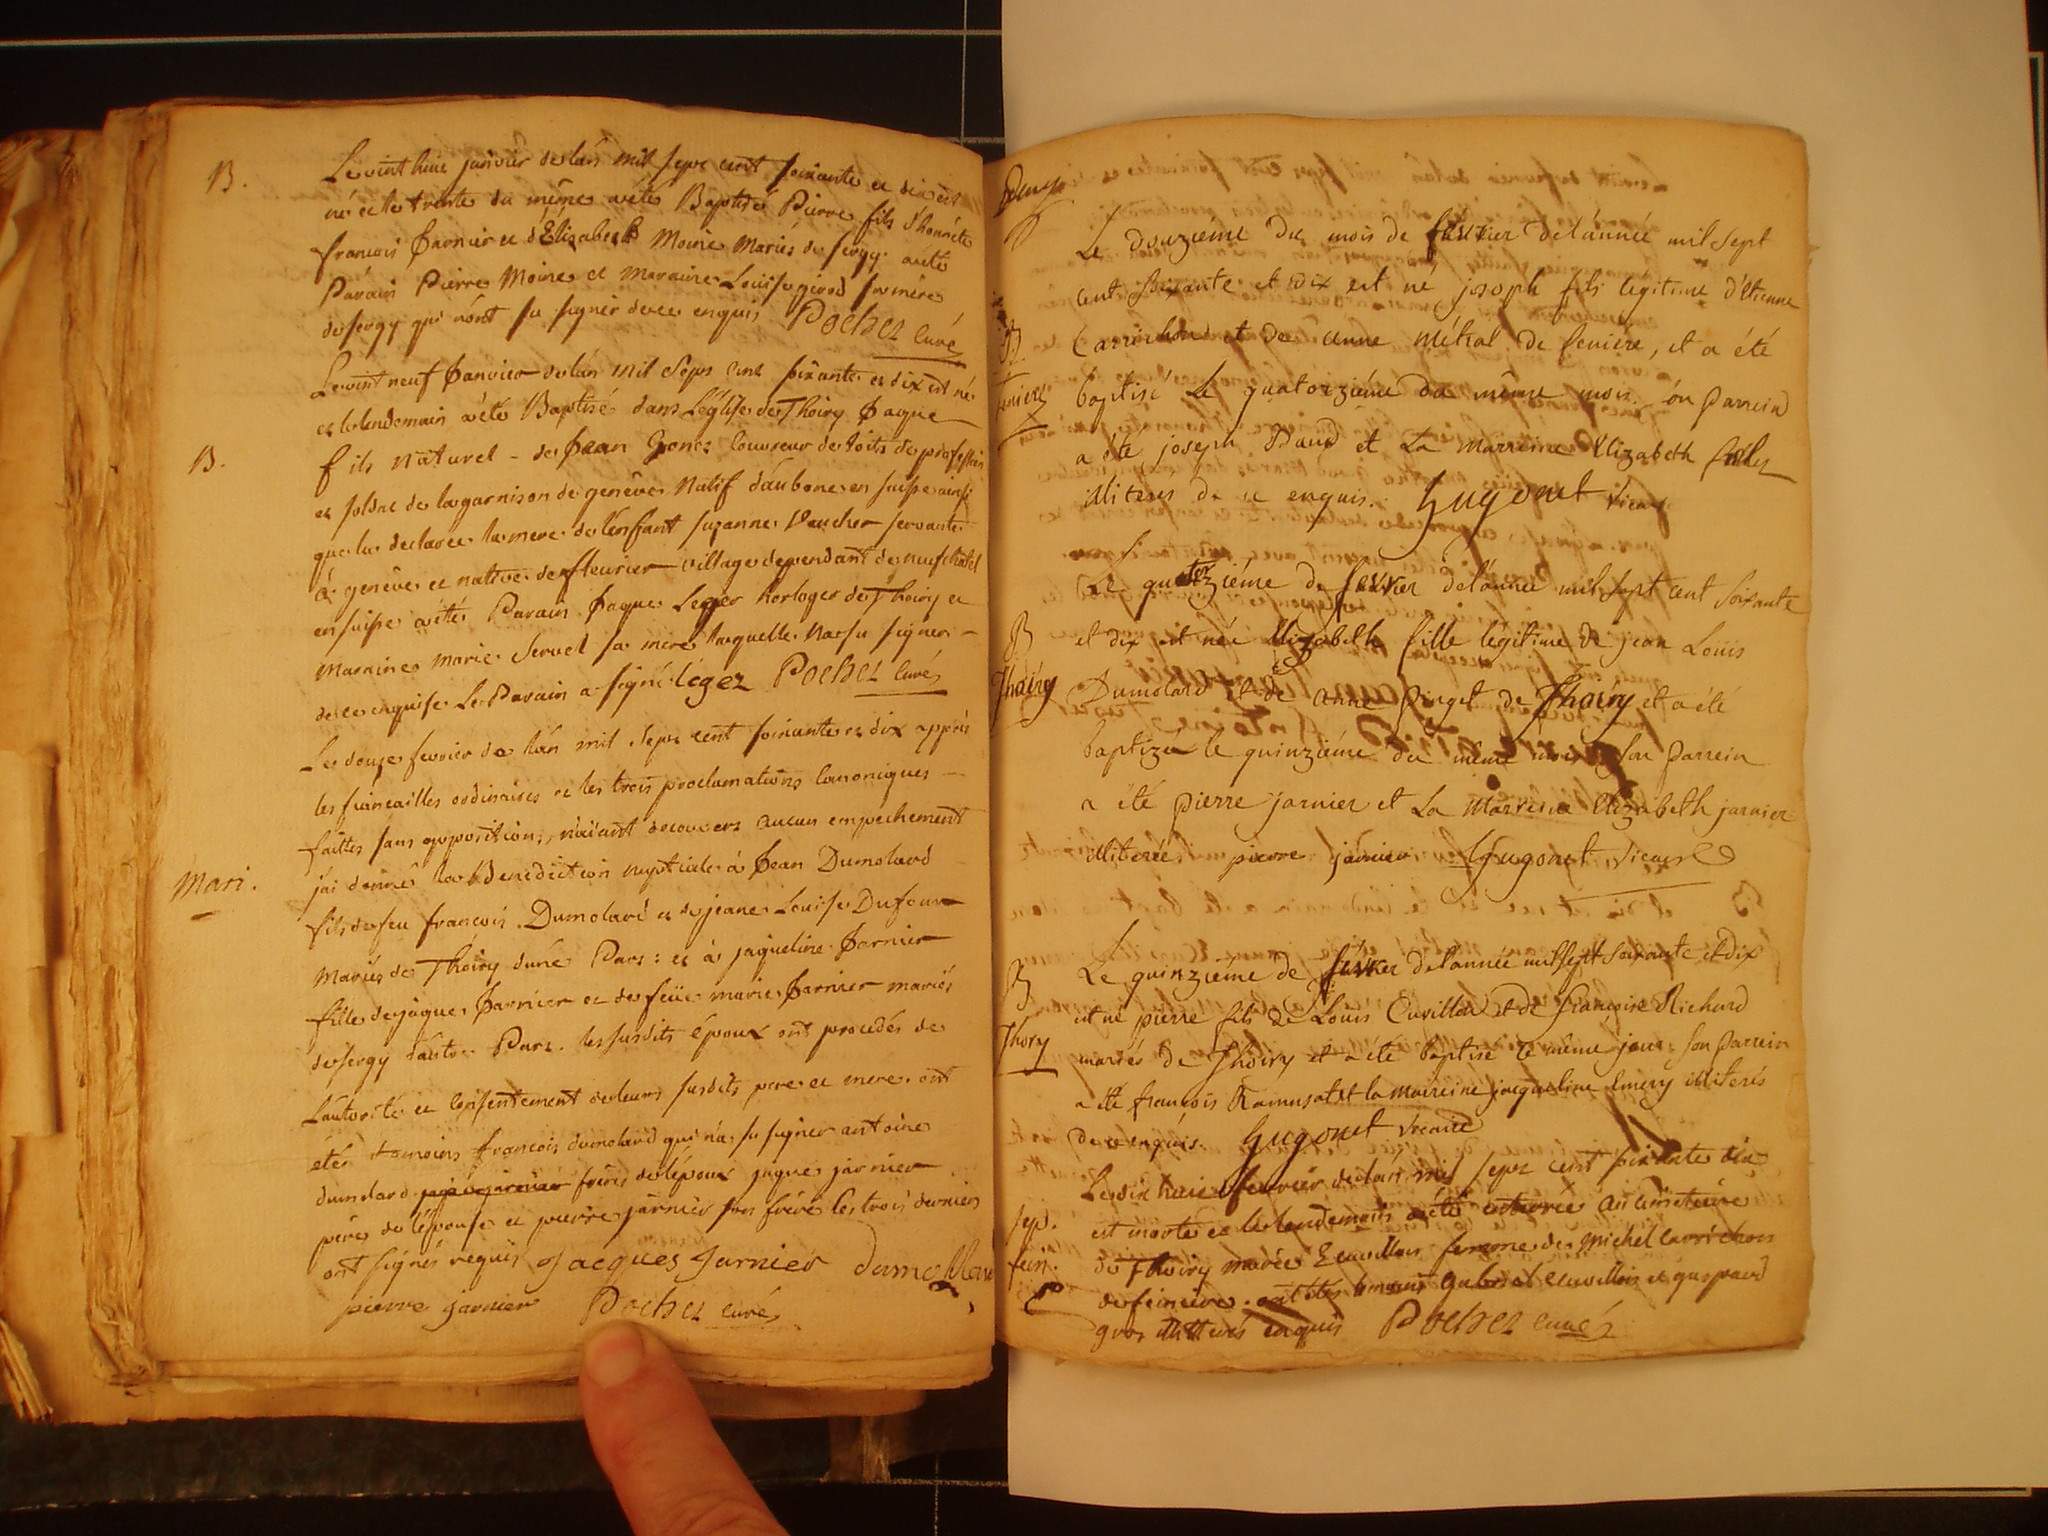 B.
Le vint huit janvier de lan mil sept cent soixante et dix est
né et le trente du même a été Baptisé Pierre fils d'honnête
francois Jarnier et d'Elizabeth Moine Mariés de sergy a été
Parain Pierre Moine et Maraine Louise girod sa mère
de sergy qui n'ont su signer de ce enquis Pochez curé
B.
Le vint neuf Janvier de lan mil Sept cent soixante et dix est né
et le lendemain a été Baptisé dans L'église de Thoiry Jaque
fils naturel de Jean Gonez couvreur de toits de profession
et soldat de la garnison de genève natif d'aubone en suisse ainsi
que la declaree la mere de l'enfant suzanne Vaucher servante
à genève et native de fleurier village dependant de neufchatel
en suisse a été Parain Jaque Leger horloger de Thoiry et
Maraine marie Servel sa mere laquelle na su signer
de ce enquise Le Parain a signé léger Pochez Curé
Mari.
Le douze fevrier de lan mil sept cent soixante et dix apprès
les fiancailles ordinaires et les trois proclamations canoniques
faittes sans opposition, n'aïant decouvert aucun empechement
jai donné la Benediction nuptiale à Jean Dumolard
fils de feu francois Dumolard et de jeane Louise Dufour
Mariés de Thoiry dune Part : et à jaqueline Jarnier
fille de jaque Jarnier et de feüe marie Jarnier mariés
de sergy dautre Part. les susdits époux ont procedés de
L'autorité et consentement de leurs susdits pere et mere. ont
étés temoins francois dumolard qui n'a su signer antoine
dumolard frères de l'époux jaque jarnier
père de l'épouse et pierre jarnier son frère les trois derniers
ont signés requis Jacques Jarnier dumollard
pierre jarnier Pochez curé
Le douzième du mois de fevrier de l'année mil sept
cent soixante et dix est né joseph fils legitime d'Etienne
B
Carrichon et de anne Métral de feniere, et a été
feniere
baptisé Le quatorzième du même mois. son parrein
a été joseph Baud et La marreine Elizabeth
illiterés de ce enquis. Hugonet vicaire
Le quatorzième de fevrier de l'année mil sept cent soixante
B
et dix est née Elizabeth fille légitime de jean Louis
Thoiry
Dumolard et de anne pinget de Thoiry et a été
baptizée le quinzième du même mois son parrein
a été pierre jarnier et La marreine Elizabeth jarnier
illiterée pierre jarnier Hugonet vicaire
B
Le quinzième de fevrier de l'année mil sept soixante et dix
est né pierre fils de Louis Cuvillon et de françoise Richard
Thoiry
mariés de Thoiry et a été baptisé le même jour. son parrein
a été francois Ramusat et la marreine jacqueline Emery illiterés
de ce enquis. Hugonet vicaire
Le dix huit fevrier de lan mil sept cent soixante dix
sep.
est morte et le lendemain a été enterrée au cimetiere
fen.
de Thoiry marie Ecuvillon femme de Michel carrichon
de feniere. ont étés temoins gabriel ecuvillon et gaspard
gros illiterés enquis Pochez curé